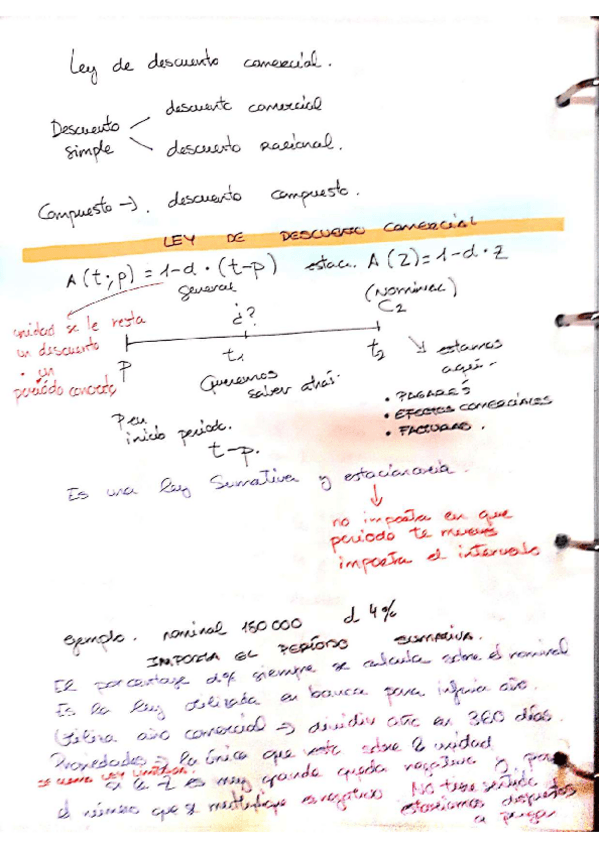 Ley de descuento comercial.
descuento comercial
Descuento
simple
descuento racional.
Compuesto → . descuento compuesto.
LEY DE DESCUENTO COMERCIAL
A(t;p) = 1-d · (t-p) estac. A(z) = 1-d · z
general
(Nominal)
C2
¿?
unidad se le resta
un descuento
· un
periódo concreto
P
t1
t2
estamos
aquí -
Queremos
saber atrás.
• PAGARÉS
• EFECTOS COMERCIALES
• FACTURAS.
P en
inicio periodo.
t-p.
Es una ley Sumativa y estacionaria.
no importa en que
periodo te mueves
importa el intervalo
ejemplo. nominal 150000 d 4%
IMPORTA EL PERÍODO SUMATIVA.
El porcentaje d% siempre se calcula sobre el nominal
Es la ley utilizada en banca para inferior año.
Utiliza año comercial → dividir año en 360 días.
Propiedades → la única que sobre la unidad
se llama LEY
a la z es muy grande queda negativa y
el número que se multiplique es negativo NO tiene sentido
estaríamos dispuestos
a pagar